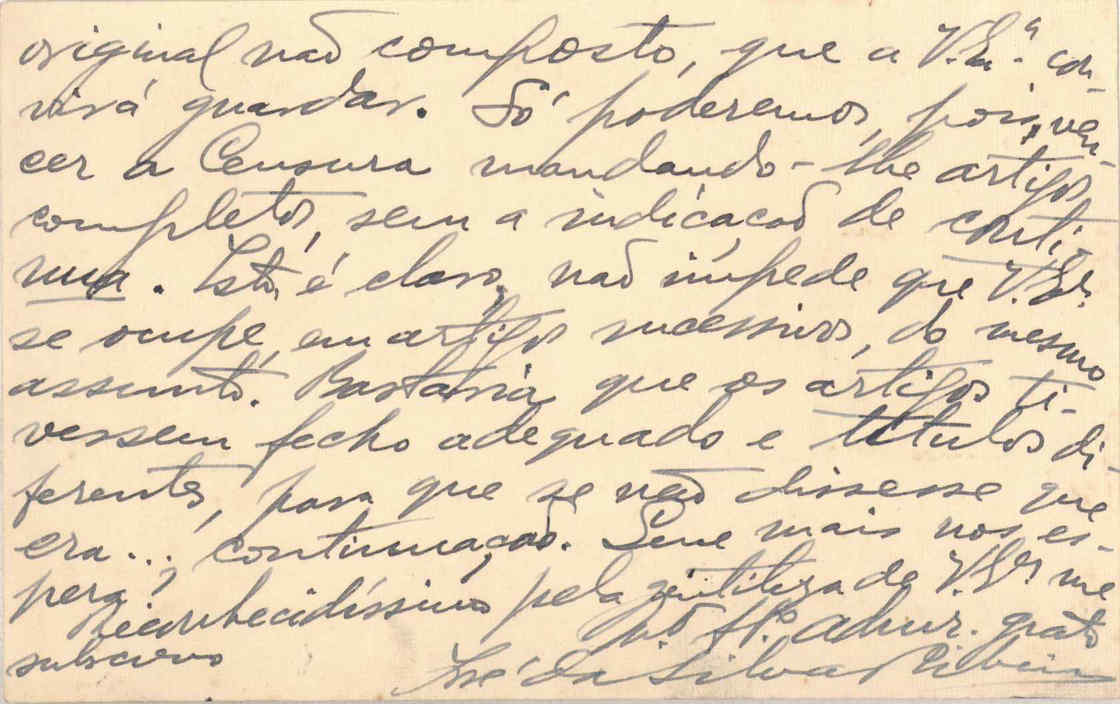 original não composto, que a V. Ex.ª con-
virá guardar. Só poderemos, pois, ven-
cer a Censura mandando-lhe artigos
completos, sem a indicação de conti-
nua. Isto, é claro, não impede que V. Ex.ª
se ocupe, em artigos sucessivos, do mesmo
assunto. Bastaria que os artigos ti-
vessem fecho adequado e titulos di
ferentes, para que se não dissesse que
era... continuação. Que mais nos es-
pera?
Reconhecidíssimo pela gentileza de V. Ex.ª me
subscrevo
admor. grato
José da Silva Ribeiro